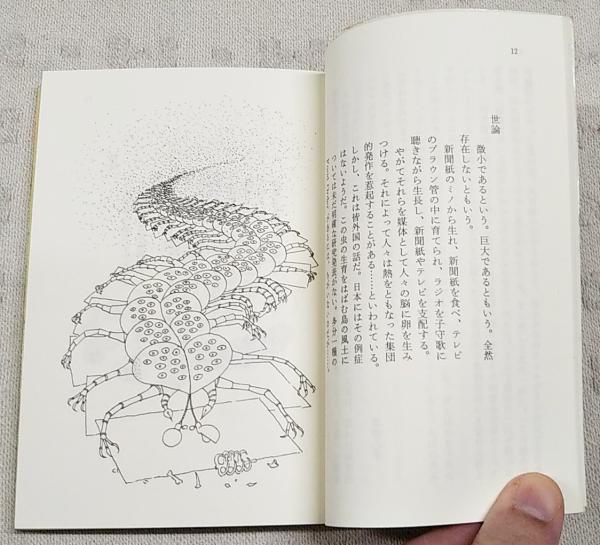 12
世論
微小であるという。巨大であるともいう。全然
存在しないともいう。
新聞紙のミノから生れ、新聞紙を食べ、テレビ
のブラウン管の中に育てられ、ラジオを子守歌に
聴きながら生長し、新聞紙やテレビを支配する。
やがてそれらを媒体として人々の脳に卵を生み
つける。それによって人々は熱をともなった集団
的発作を惹起することがある……といわれている。
しかし、これは皆外国の話だ。日本にはその例症
はないようだ。この虫の生育をはばむ島の風土に
ついては未だ明確な研究発表がない。多分一種の